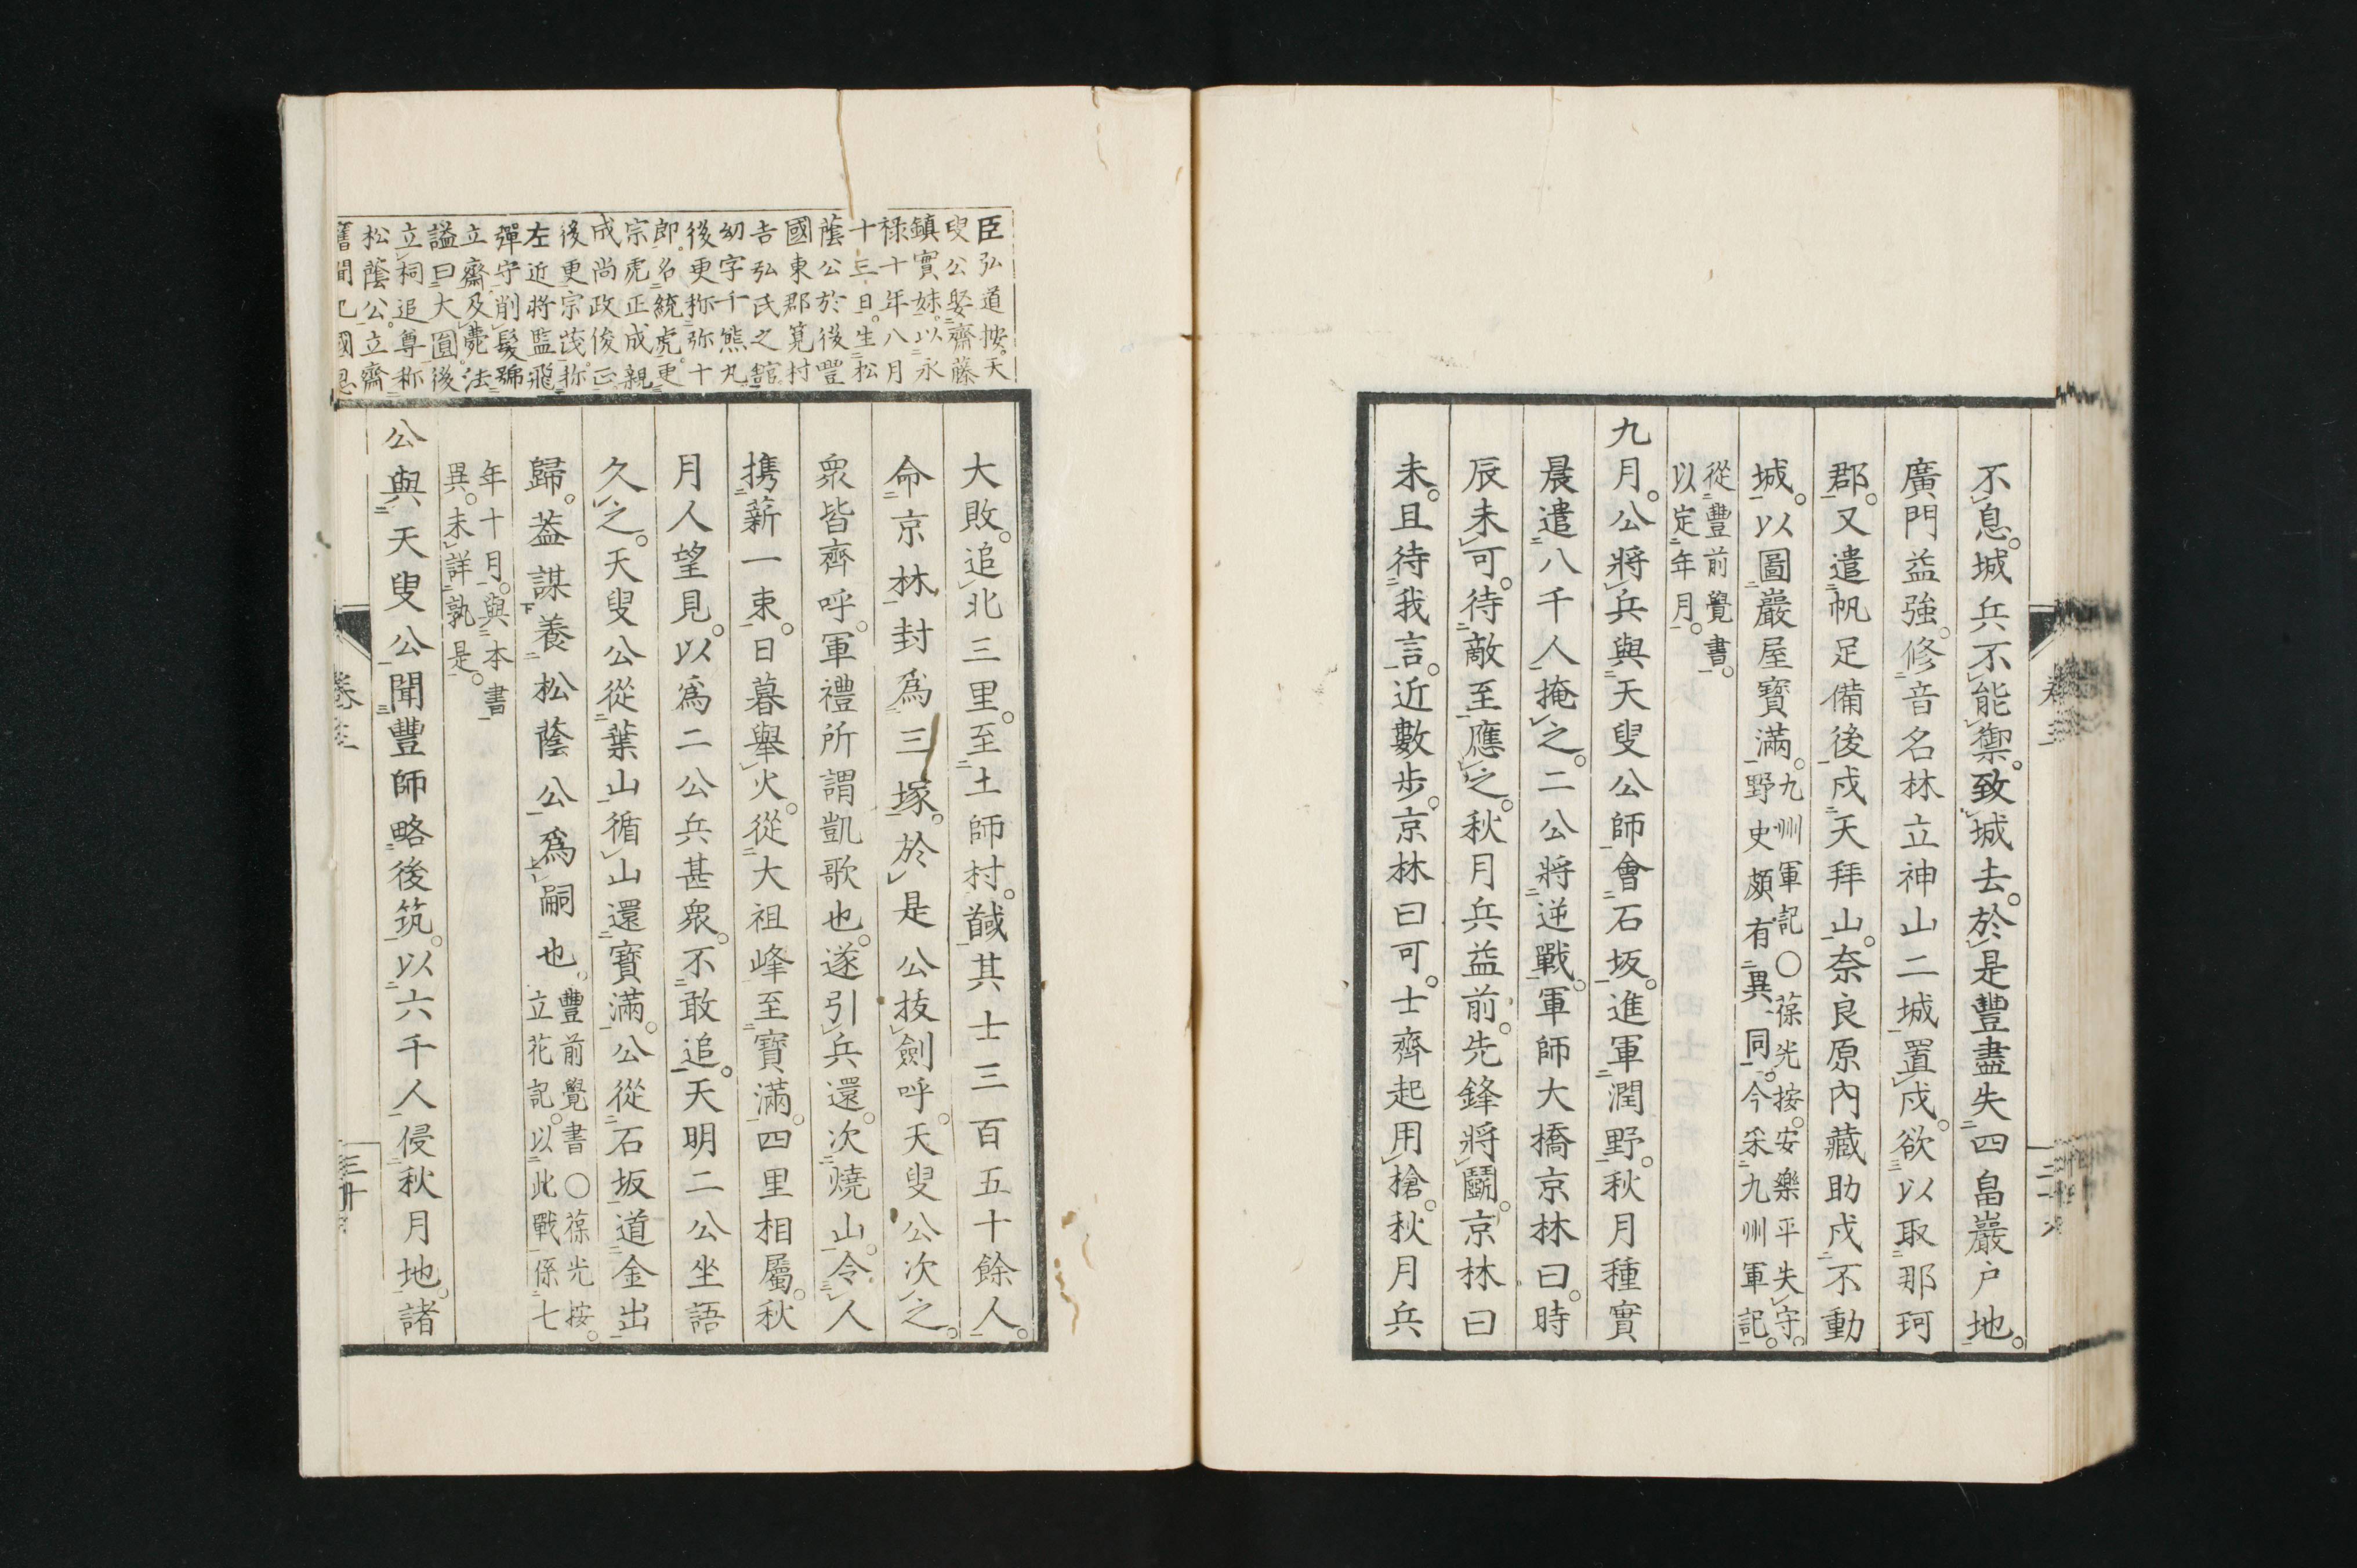 不息。城兵不能禦。致城去。於是豐盡失四畠巖戸地。
廣門益強。修音名林立神山二城置戍。欲以取那珂
郡。又遣帆足備後戍天拜山。奈良原內藏助戍不動
城。以圖巖屋寶滿。九州軍記○葆光按。安樂平失守。
野史頗有異同。今采九州軍記。
從豐前覺書。
以定年月。
九月。公將兵與天叟公師會石坂。進軍潤野。秋月種實
晨遣八千人掩之。二公將逆戰。軍師大橋京林曰。時
辰未可。待敵至應之。秋月兵益前。先鋒將鬭。京林曰
未。且待我言。近數步。京林曰可。士齊起用槍。秋月兵
臣弘道按。天
叟公娶齋藤
鎮實妹。以永
祿十年八月
十三日。生松
蔭公於後豐
國東郡筧村
吉弘氏之舘
幼字千熊丸
後更称弥十
郎。名統虎。更
宗虎正成親
成尚政俊正
後更宗茂。称
左近將監飛
彈守削髮號
立齋及薨法
謚曰大圓。後
立祠追尊称
松蔭公。立齋
大敗。追北三里。至土師村。馘其士三百五十餘人。
命京林封爲三塚。於是公抜劍呼。天叟公次之。
衆皆齊呼。軍禮所謂凱歌也。遂引兵還。次燒山。令人
携薪一束。日暮舉火。從大祖峰至寶滿。四里相屬。秋
月人望見。以爲二公兵甚衆。不敢追。天明二公坐語
久之。天叟公從葉山循山還寶滿。公從石坂道金出
歸。葢謀養松蔭公爲嗣也。豐前覺書○葆光按。
立花記。以此戰係七
年十月。與本書
異。未詳孰是。
公與天叟公聞豐師略後筑。以六千人侵秋月地。諸